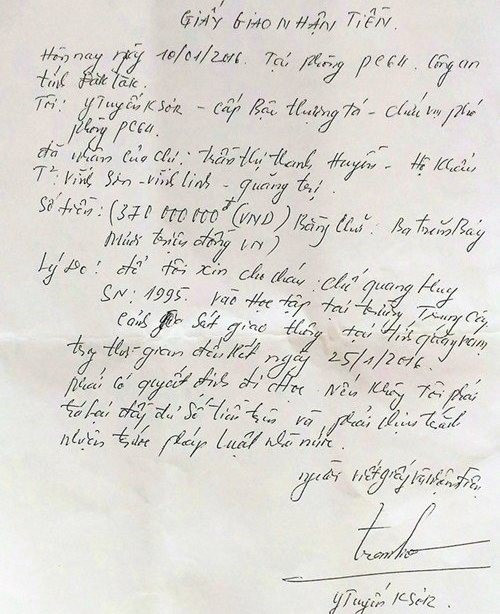 GIẤY GIAO NHẬN TIỀN.
Hôm nay ngày 10/01/2016. Tại phòng PC64. Công an
tỉnh Đăk Lăk.
Tôi: YTuyển KSOR - cấp Bậc thượng tá - chức vụ phó
phòng PC64.
đã nhận của chị: Trần thị thanh Huyền - Hộ Khẩu
T²: Vĩnh Sơn - Vĩnh linh - quảng trị.
Số tiền: (370 000 000đ (VND) Bằng chữ: Ba trăm Bảy
mươi triệu đồng VN)
Lý do: để tôi xin cho cháu: chử quang Huy
SN: 1995. vào học tập tại trường Trung Cấp
Cảnh Sát giao thông tại tỉnh quảng nam
trong thời gian đến hết ngày 25/1/2016.
phải có quyết định đi học. Nếu không tôi phải
trả lại đầy đủ số tiền trên và phải chịu trách
nhiệm trước pháp luật nhà nước.
người viết giấy và nhận tiền
YTuyển KSOR.